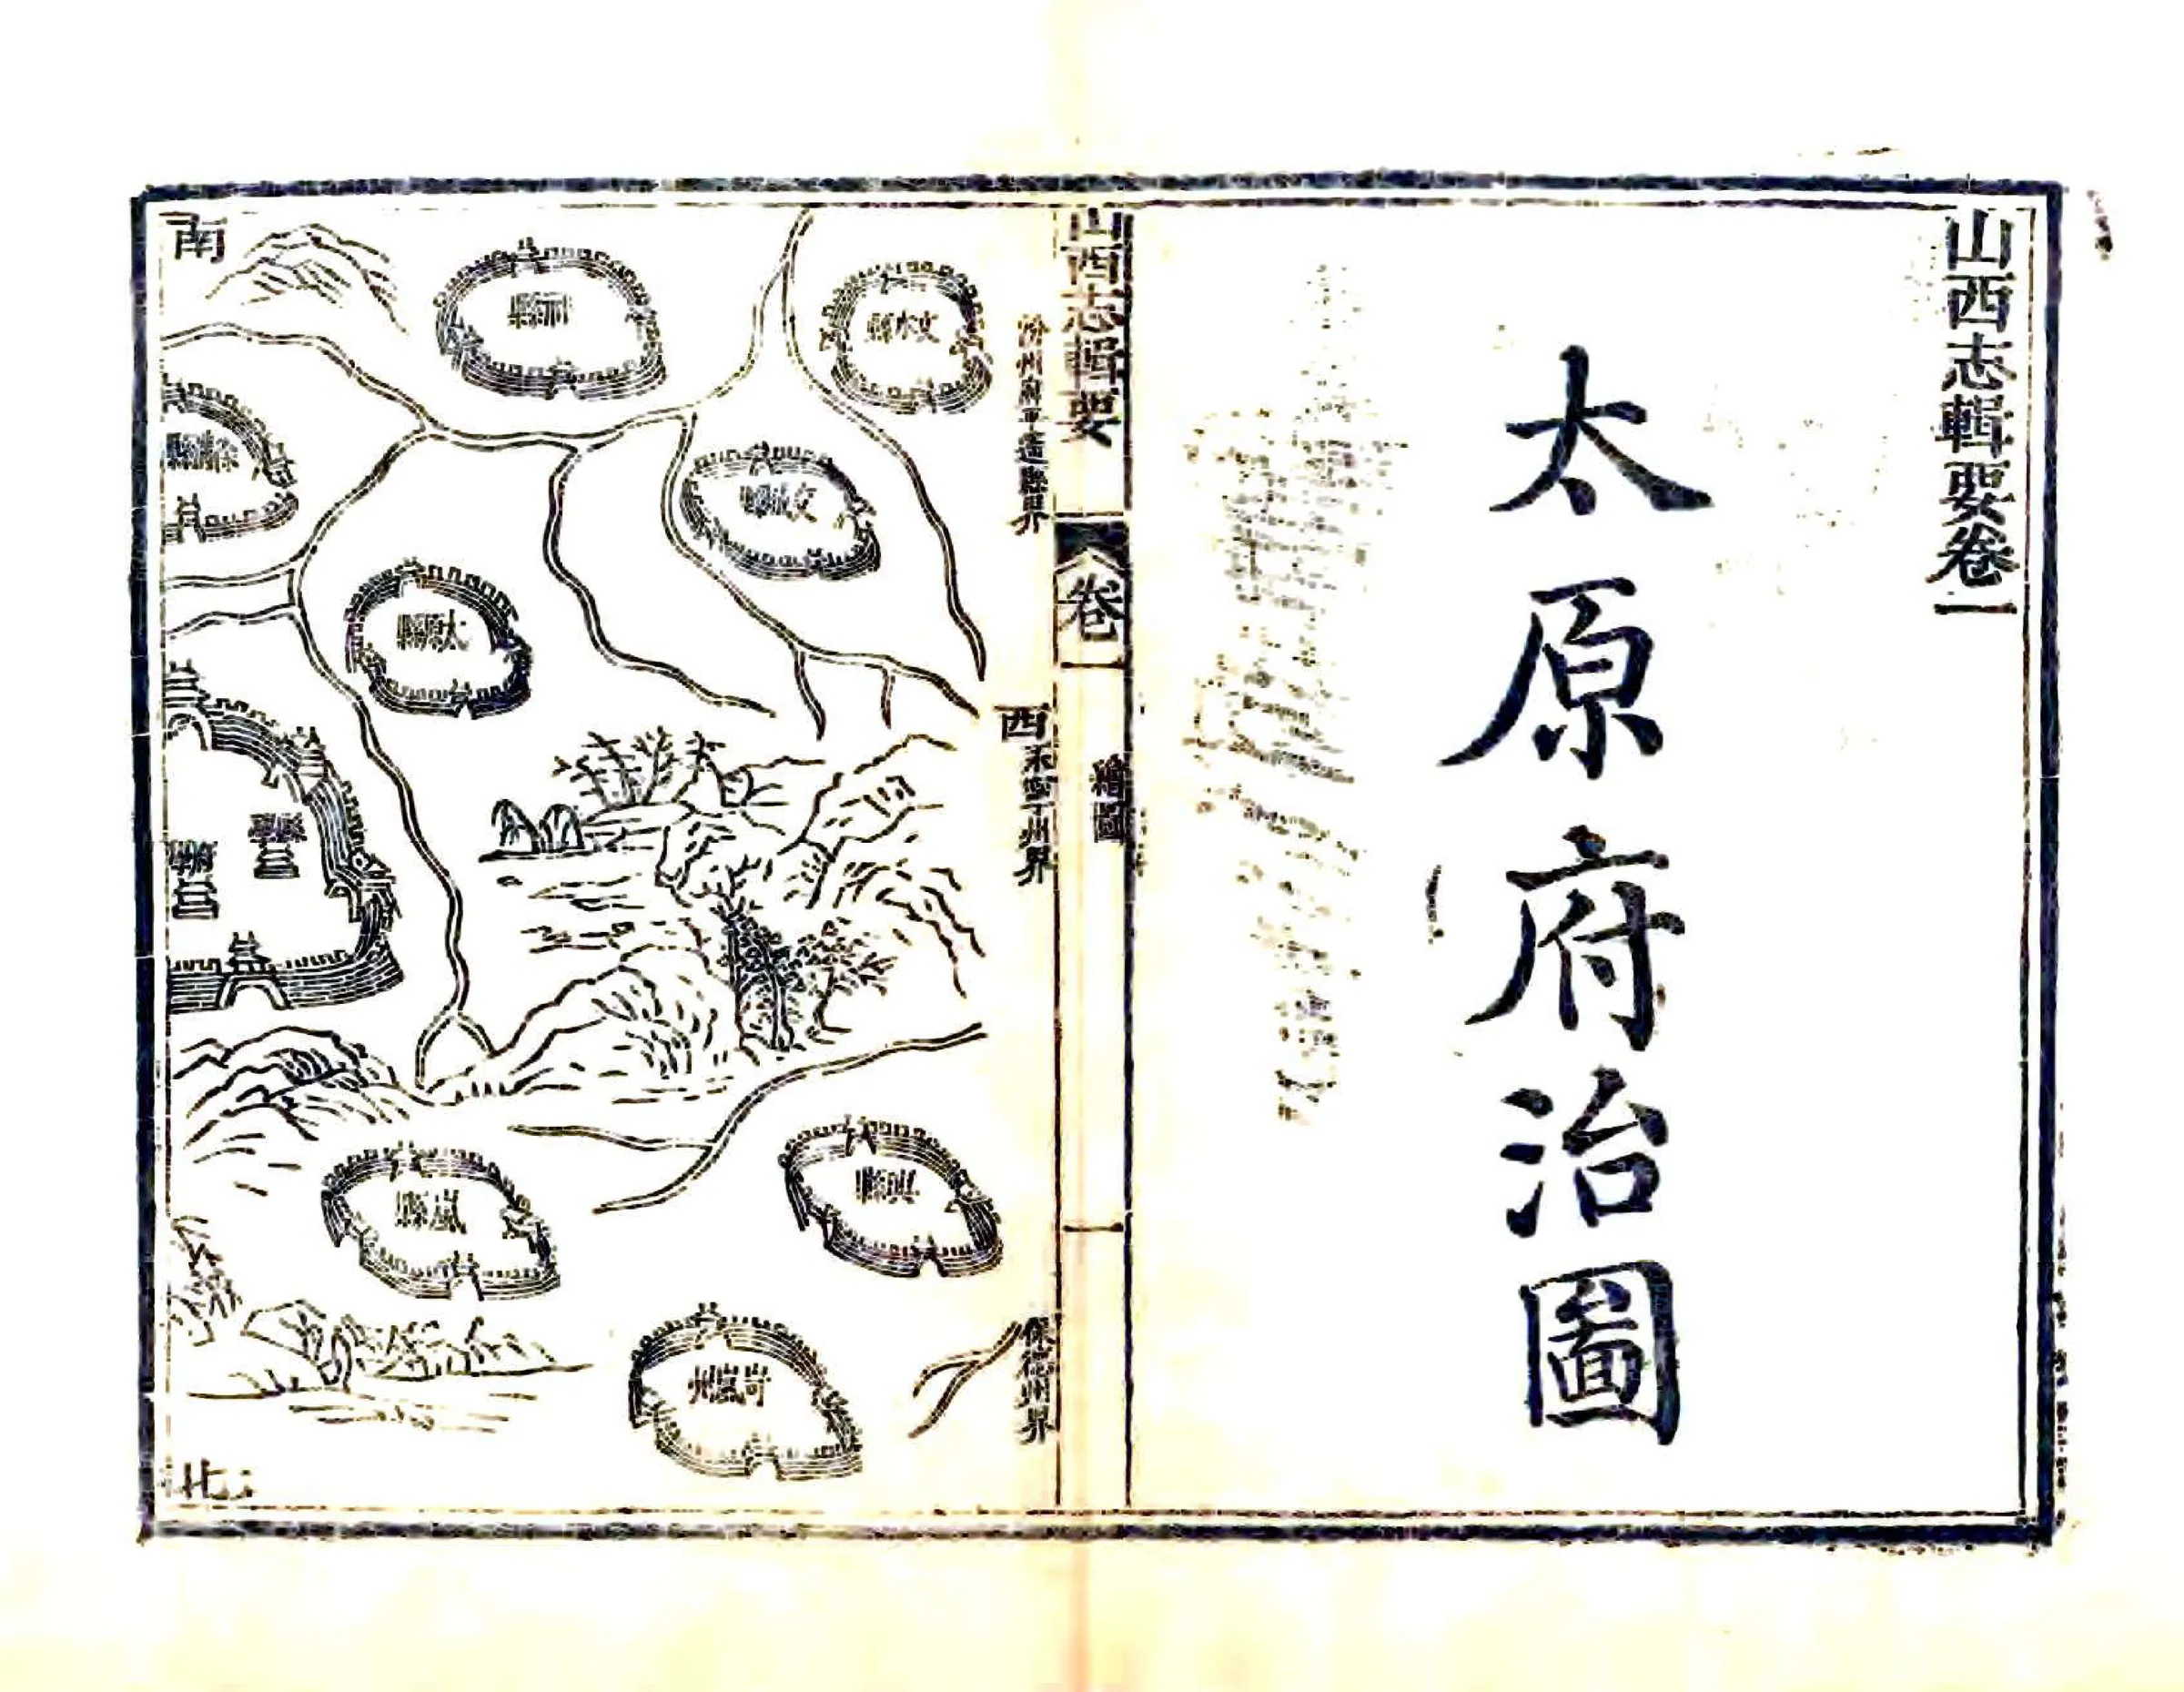 山西志輯要卷一
太原府治圖
山西志輯要
卷一
繪圖
一
汾州府平遙縣界
西
永寧州界
保德州界
文水縣
交城縣
興縣
岢嵐州
祁縣
太原縣
嵐縣
南
徐溝縣
北